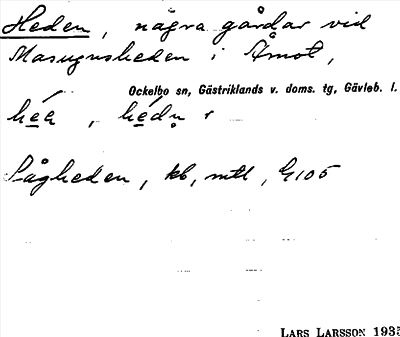 Heden, några gårdar vid
Masugnsheden i Åmot,
Ockelbo sn, Gästriklands v. doms. tg, Gävleb. l.
héa, hédṇ
Sågheden, kb, mtl, G105
LARS LARSSON 1935